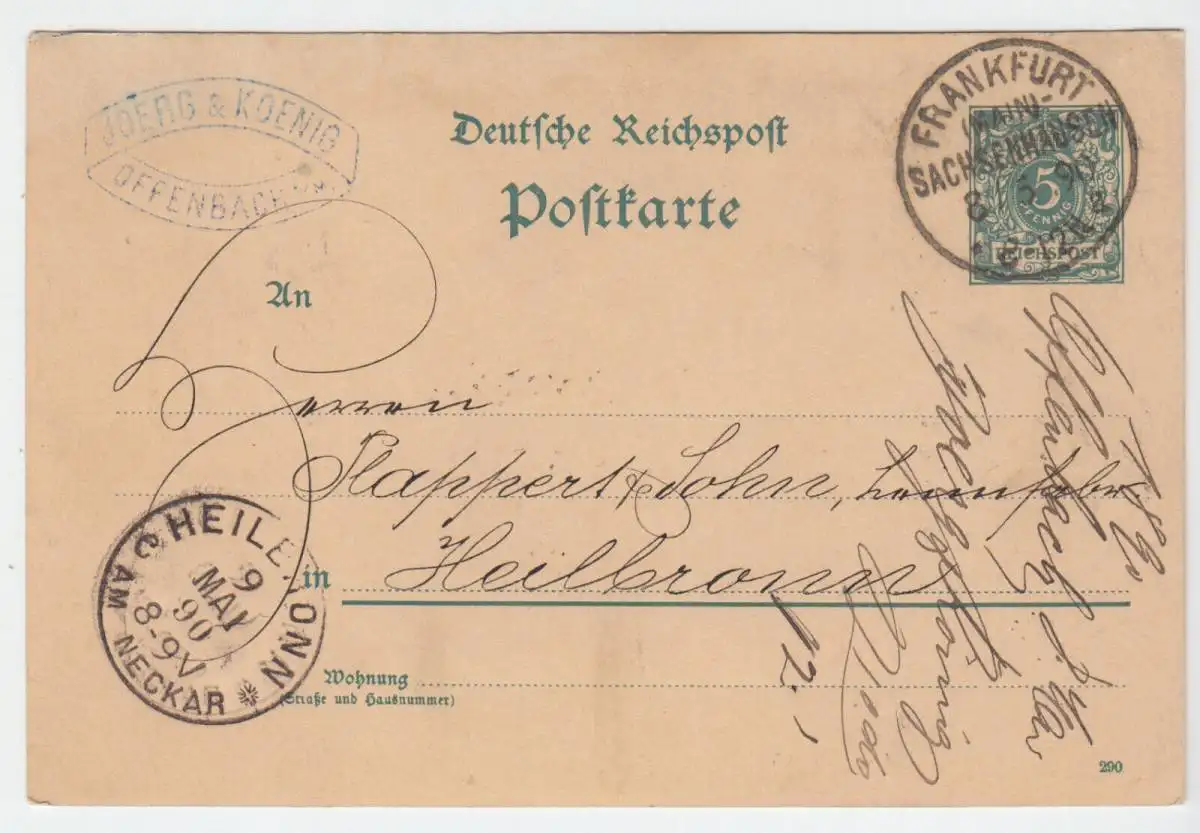 JOERG & KOENIG
OFFENBACH
Deutsche Reichspost
Postkarte
FRANKFURT
(MAIN)-
SACHSENHAUSEN
8 5 90
5
PFENNIG
REICHSPOST
An
Herren
Flappert & Sohn,
in Heilbronn
HEILBRONN
9
MAI
90
8-9V
AM NECKAR
Wohnung
(Straße und Hausnummer)
Offenbach
Joerg & Koenig
290